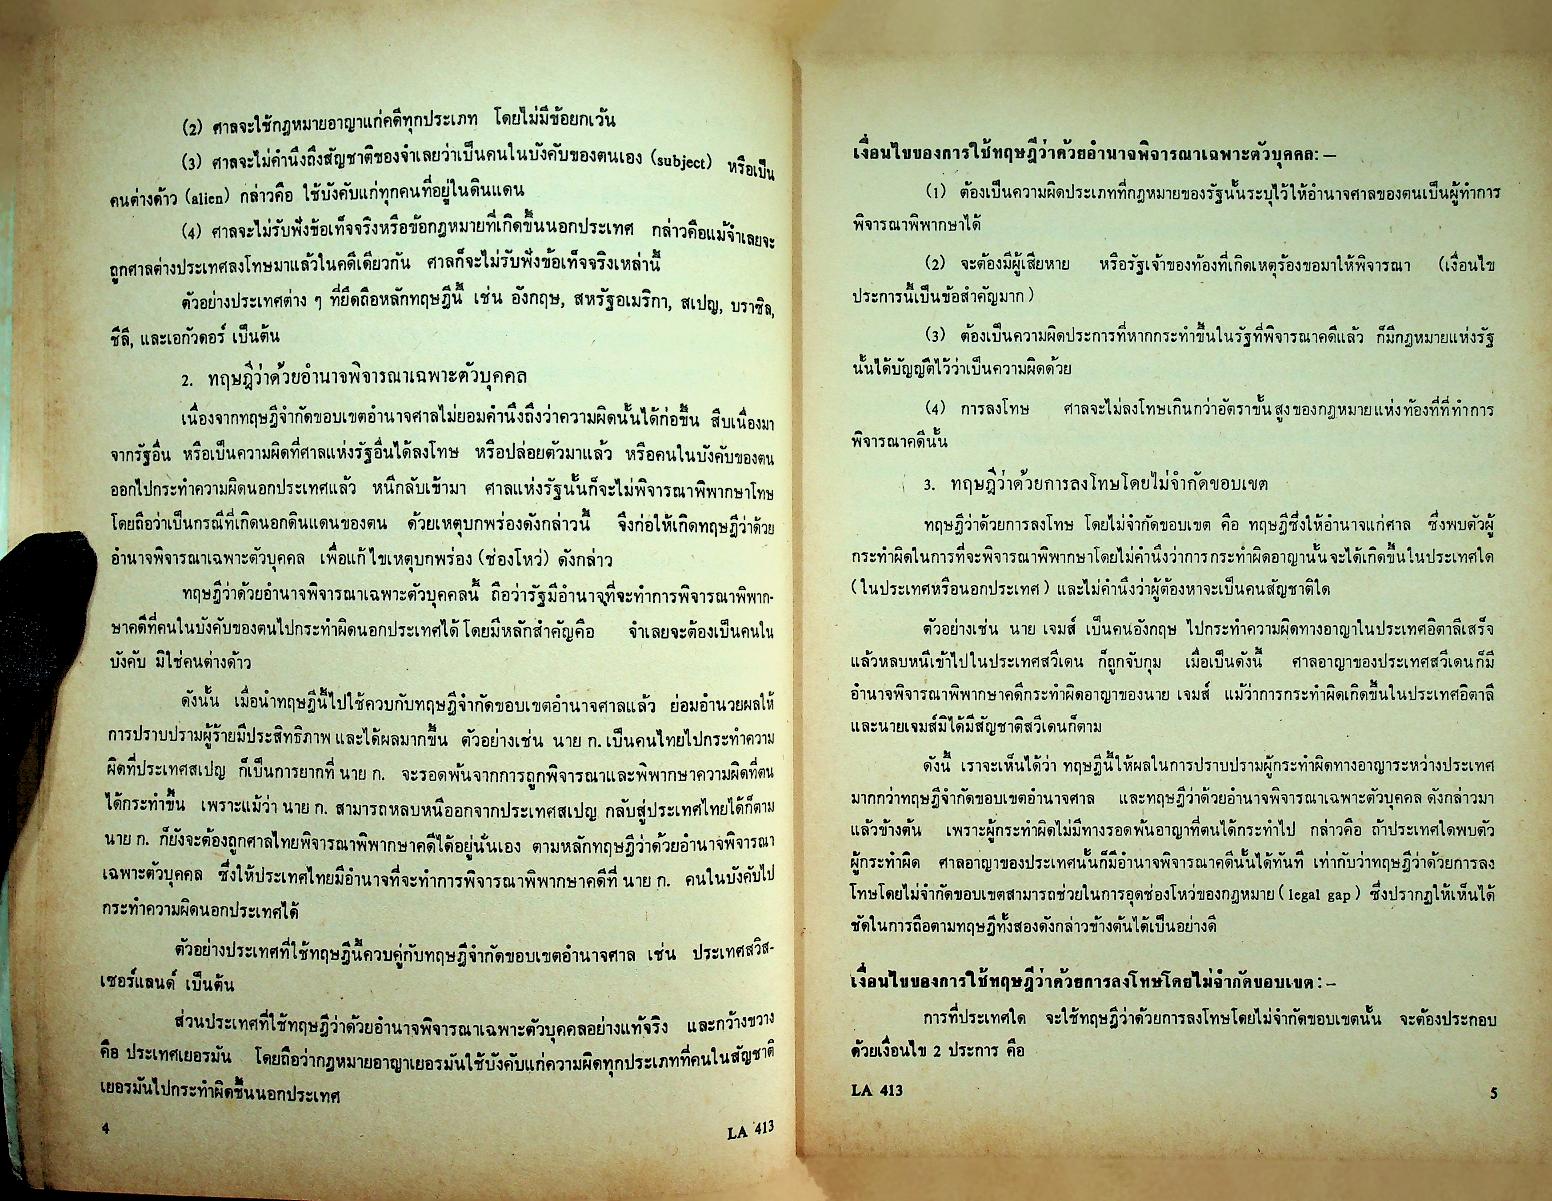 (2) ศาลจะใช้กฎหมายอาญาแก่คดีทุกประเภท โดยไม่มีข้อยกเว้น
(3) ศาลจะไม่คำนึงถึงสัญชาติของจำเลยว่าเป็นคนในบังคับของตนเอง (subject) หรือเป็น
คนต่างด้าว (alien) กล่าวคือ ใช้บังคับแก่ทุกคนที่อยู่ในดินแดน
(4) ศาลจะไม่รับฟังข้อเท็จจริงหรือข้อกฎหมายที่เกิดขึ้นนอกประเทศ กล่าวคือแม้จำเลยจะ
ถูกศาลต่างประเทศลงโทษมาแล้วในคดีเดียวกัน ศาลก็จะไม่รับฟังข้อเท็จจริงเหล่านี้
ตัวอย่างประเทศต่าง ๆ ที่ยึดถือหลักทฤษฎีนี้ เช่น อังกฤษ, สหรัฐอเมริกา, สเปญ, บราซิล,
ชีลี, และเอกัวดอร์ เป็นต้น
2. ทฤษฎีว่าด้วยอำนาจพิจารณาเฉพาะตัวบุคคล
เนื่องจากทฤษฎีจำกัดขอบเขตอำนาจศาลไม่ยอมคำนึงถึงว่าความผิดนั้นได้ก่อขึ้น สืบเนื่องมา
จากรัฐอื่น หรือเป็นความผิดที่ศาลแห่งรัฐอื่นได้ลงโทษ หรือปล่อยตัวมาแล้ว หรือคนในบังคับของตน
ออกไปกระทำความผิดนอกประเทศแล้ว หนีกลับเข้ามา ศาลแห่งรัฐนั้นก็จะไม่พิจารณาพิพากษาโทษ
โดยถือว่าเป็นกรณีที่เกิดนอกดินแดนของตน ด้วยเหตุบกพร่องดังกล่าวนี้ จึงก่อให้เกิดทฤษฎีว่าด้วย
อำนาจพิจารณาเฉพาะตัวบุคคล เพื่อแก้ไขเหตุบกพร่อง (ช่องโหว่) ดังกล่าว
ทฤษฎีว่าด้วยอำนาจพิจารณาเฉพาะตัวบุคคลนี้ ถือว่ารัฐมีอำนาจที่จะทำการพิจารณาพิพาก-
ษาคดีที่คนในบังคับของตนไปกระทำผิดนอกประเทศได้ โดยมีหลักสำคัญคือ จำเลยจะต้องเป็นคนใน
บังคับ มิใช่คนต่างด้าว
ดังนั้น เมื่อนำทฤษฎีนี้ไปใช้ควบกับทฤษฎีจำกัดขอบเขตอำนาจศาลแล้ว ย่อมอำนวยผลให้
การปราบปรามผู้ร้ายมีประสิทธิภาพ และได้ผลมากขึ้น ตัวอย่างเช่น นาย ก. เป็นคนไทยไปกระทำความ
ผิดที่ประเทศสเปญ ก็เป็นการยากที่ นาย ก. จะรอดพ้นจากการถูกพิจารณาและพิพากษาความผิดที่ตน
ได้กระทำขึ้น เพราะแม้ว่า นาย ก. สามารถหลบหนีออกจากประเทศสเปญ กลับสู่ประเทศไทยได้ก็ตาม
นาย ก. ก็ยังจะต้องถูกศาลไทยพิจารณาพิพากษาคดีได้อยู่นั่นเอง ตามหลักทฤษฎีว่าด้วยอำนาจพิจารณา
เฉพาะตัวบุคคล ซึ่งให้ประเทศไทยมีอำนาจที่จะทำการพิจารณาพิพากษาคดีที่ นาย ก. คนในบังคับไป
กระทำความผิดนอกประเทศได้
ตัวอย่างประเทศที่ใช้ทฤษฎีนี้ควบคู่กับทฤษฎีจำกัดขอบเขตอำนาจศาล เช่น ประเทศสวิส-
เซอร์แลนด์ เป็นต้น
ส่วนประเทศที่ใช้ทฤษฎีว่าด้วยอำนาจพิจารณาเฉพาะตัวบุคคลอย่างแท้จริง และกว้างขวาง
คือ ประเทศเยอรมัน โดยถือว่ากฎหมายอาญาเยอรมันใช้บังคับแก่ความผิดทุกประเภทที่คนในสัญชาติ
เยอรมันไปกระทำผิดขึ้นนอกประเทศ
4 LA 413
เงื่อนไขของการใช้ทฤษฎีว่าด้วยอำนาจพิจารณาเฉพาะตัวบุคคล: —
(1) ต้องเป็นความผิดประเภทที่กฎหมายของรัฐนั้นระบุไว้ให้อำนาจศาลของตนเป็นผู้ทำการ
พิจารณาพิพากษาได้
(2) จะต้องมีผู้เสียหาย หรือรัฐเจ้าของท้องที่เกิดเหตุร้องขอมาให้พิจารณา (เงื่อนไข
ประการนี้เป็นข้อสำคัญมาก)
(3) ต้องเป็นความผิดประการที่หากกระทำขึ้นในรัฐที่พิจารณาคดีแล้ว ก็มีกฎหมายแห่งรัฐ
นั้นได้บัญญัติไว้ว่าเป็นความผิดด้วย
(4) การลงโทษ ศาลจะไม่ลงโทษเกินกว่าอัตราขั้นสูงของกฎหมายแห่งท้องที่ที่ทำการ
พิจารณาคดีนั้น
3. ทฤษฎีว่าด้วยการลงโทษโดยไม่จำกัดขอบเขต
ทฤษฎีว่าด้วยการลงโทษ โดยไม่จำกัดขอบเขต คือ ทฤษฎีซึ่งให้อำนาจแก่ศาล ซึ่งพบตัวผู้
กระทำผิดในการที่จะพิจารณาพิพากษาโดยไม่คำนึงว่าการกระทำผิดอาญานั้นจะได้เกิดขึ้นในประเทศใด
(ในประเทศหรือนอกประเทศ) และไม่คำนึงว่าผู้ต้องหาจะเป็นคนสัญชาติใด
ตัวอย่างเช่น นาย เจมส์ เป็นคนอังกฤษ ไปกระทำความผิดทางอาญาในประเทศอิตาลีเสร็จ
แล้วหลบหนีเข้าไปในประเทศสวีเดน ก็ถูกจับกุม เมื่อเป็นดังนี้ ศาลอาญาของประเทศสวีเดนก็มี
อำนาจพิจารณาพิพากษาคดีกระทำผิดอาญาของนาย เจมส์ แม้ว่าการกระทำผิดเกิดขึ้นในประเทศอิตาลี
และนายเจมส์มิได้มีสัญชาติสวีเดนก็ตาม
ดังนี้ เราจะเห็นได้ว่า ทฤษฎีนี้ให้ผลในการปราบปรามผู้กระทำผิดทางอาญาระหว่างประเทศ
มากกว่าทฤษฎีจำกัดขอบเขตอำนาจศาล และทฤษฎีว่าด้วยอำนาจพิจารณาเฉพาะตัวบุคคล ดังกล่าวมา
แล้วข้างต้น เพราะผู้กระทำผิดไม่มีทางรอดพ้นอาญาที่ตนได้กระทำไป กล่าวคือ ถ้าประเทศใดพบตัว
ผู้กระทำผิด ศาลอาญาของประเทศนั้นก็มีอำนาจพิจารณาคดีนั้นได้ทันที เท่ากับว่าทฤษฎีว่าด้วยการลง
โทษโดยไม่จำกัดขอบเขตสามารถช่วยในการอุดช่องโหว่ของกฎหมาย (legal gap) ซึ่งปรากฏให้เห็นได้
ชัดในการถือตามทฤษฎีทั้งสองดังกล่าวข้างต้นได้เป็นอย่างดี
เงื่อนไขของการใช้ทฤษฎีว่าด้วยการลงโทษโดยไม่จำกัดขอบเขต: —
การที่ประเทศใด จะใช้ทฤษฎีว่าด้วยการลงโทษโดยไม่จำกัดขอบเขตนั้น จะต้องประกอบ
ด้วยเงื่อนไข 2 ประการ คือ
LA 413 5